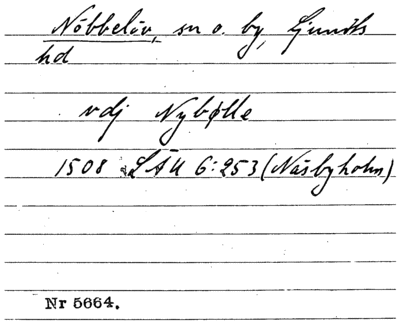 Nöbbelöv, sn o. by, Ljunits
hd
vdj Nybølle
1508 LÄU 6:253 (Näsbyholm)
Nr 5664.